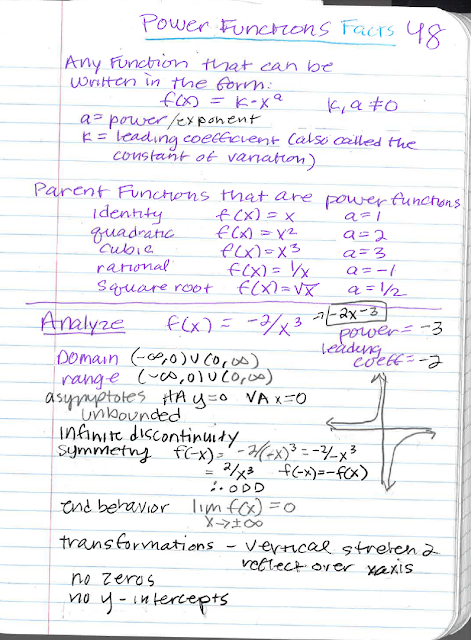 Power Functions Facts 48
Any Function that can be
written in the form:
f(x) = k·xᵃ k, a ≠ 0
a = power/exponent
k = leading coefficient (also called the
constant of variation)
Parent Functions that are power functions
identity f(x) = x a = 1
quadratic f(x) = x² a = 2
cubic f(x) = x³ a = 3
rational f(x) = 1/x a = -1
square root f(x) = √x a = 1/2
Analyze f(x) = -2/x³ → -2x-3
power = -3
leading
coeff = -2
Domain (-∞,0)∪(0,∞)
range (-∞,0)∪(0,∞)
asymptotes HA y=0 VA x=0
unbounded
infinite discontinuity
symmetry f(-x) = -2/(-x)³ = -2/-x³
= 2/x³ f(-x) = -f(x)
∴ ODD
end behavior lim f(x) = 0
x→±∞
transformations - vertical stretch 2
reflect over xaxis
no zeros
no y-intercepts